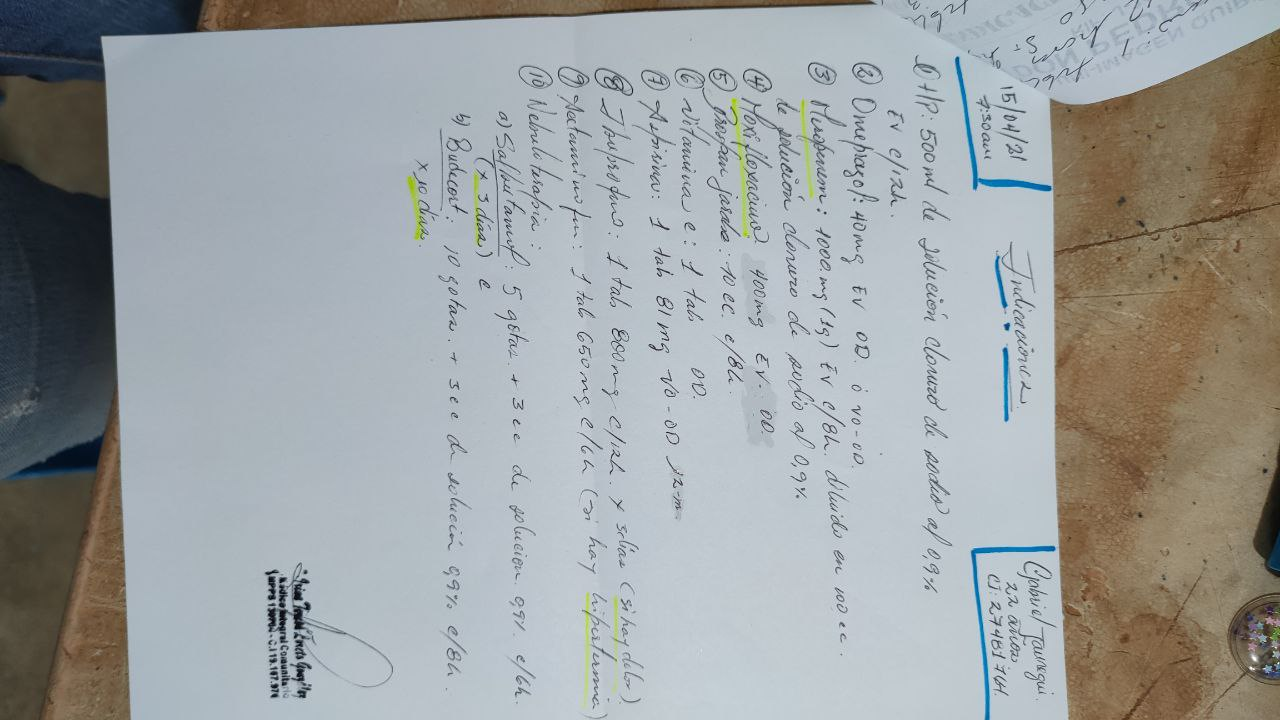 15/04/21
7:30am
Indicaciones
Gabriel Jauregui.
22 años
CI. 27481764.
① H/P: 500 ml de solución cloruro de sodio al 0,9%
EV c/12h.
② Omeprazol: 40mg EV OD. ó VO-OD.
③ Meropenem: 1000mg (1g) EV c/8h. diluido en 100 cc.
de solución cloruro de sodio al 0,9%
④ Moxifloxacino 400mg EV. OD.
⑤ jarabe: 10 cc. c/8h.
⑥ Vitamina C: 1 tab OD.
⑦ Aspirina: 1 tab 81mg VO-OD 12-m
⑧ Ibuprofeno: 1 tab 800mg c/12h. x 3 días (si hay dolor)
⑨ Acetaminofen: 1 tab 650mg c/6h (si hay hipertermia)
⑩ Nebuloterapia:
a) Salbutamol: 5 gotas. + 3cc de solucion 0,9%. c/6h.
(x 3 días) c
b) Budecort. 10 gotas. + 3cc de solución 0,9% c/8h.
x 10 días.
Médico Integral Comunitario